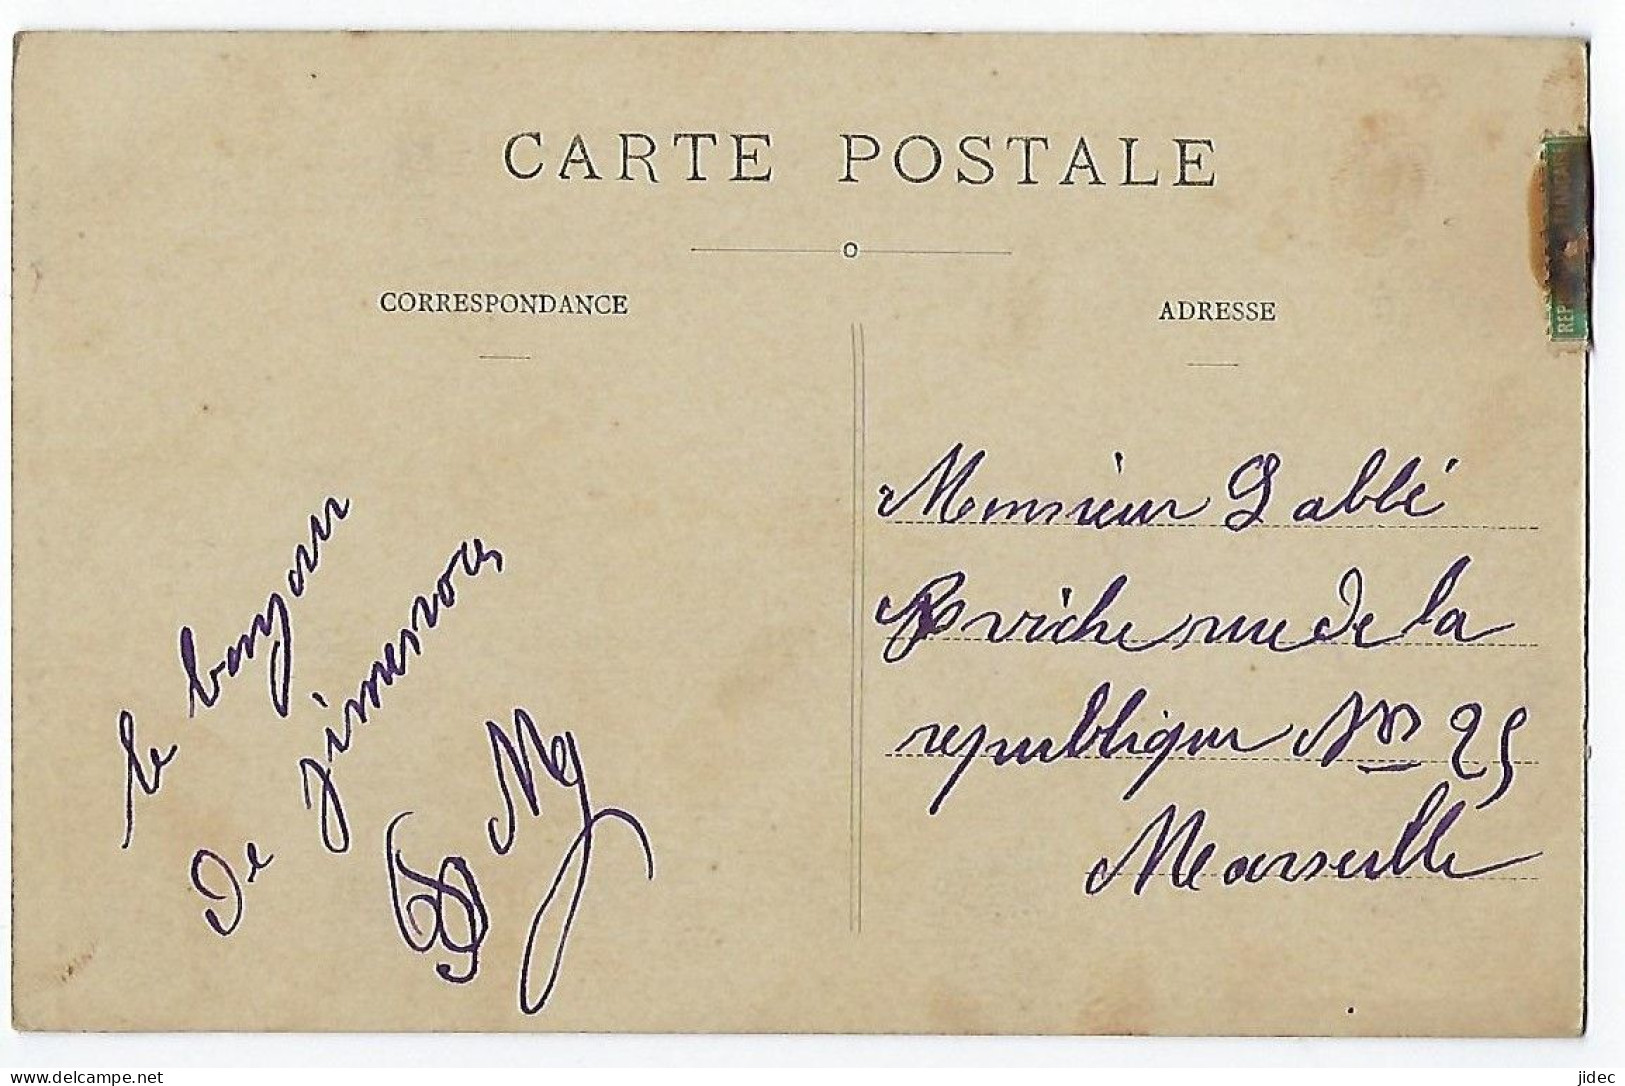 CARTE POSTALE
CORRESPONDANCE
ADRESSE
le bonjour
de
Monsieur L abbé
rue de la
republique Nos 25
Marseille
REP
delcampe.net
jidec